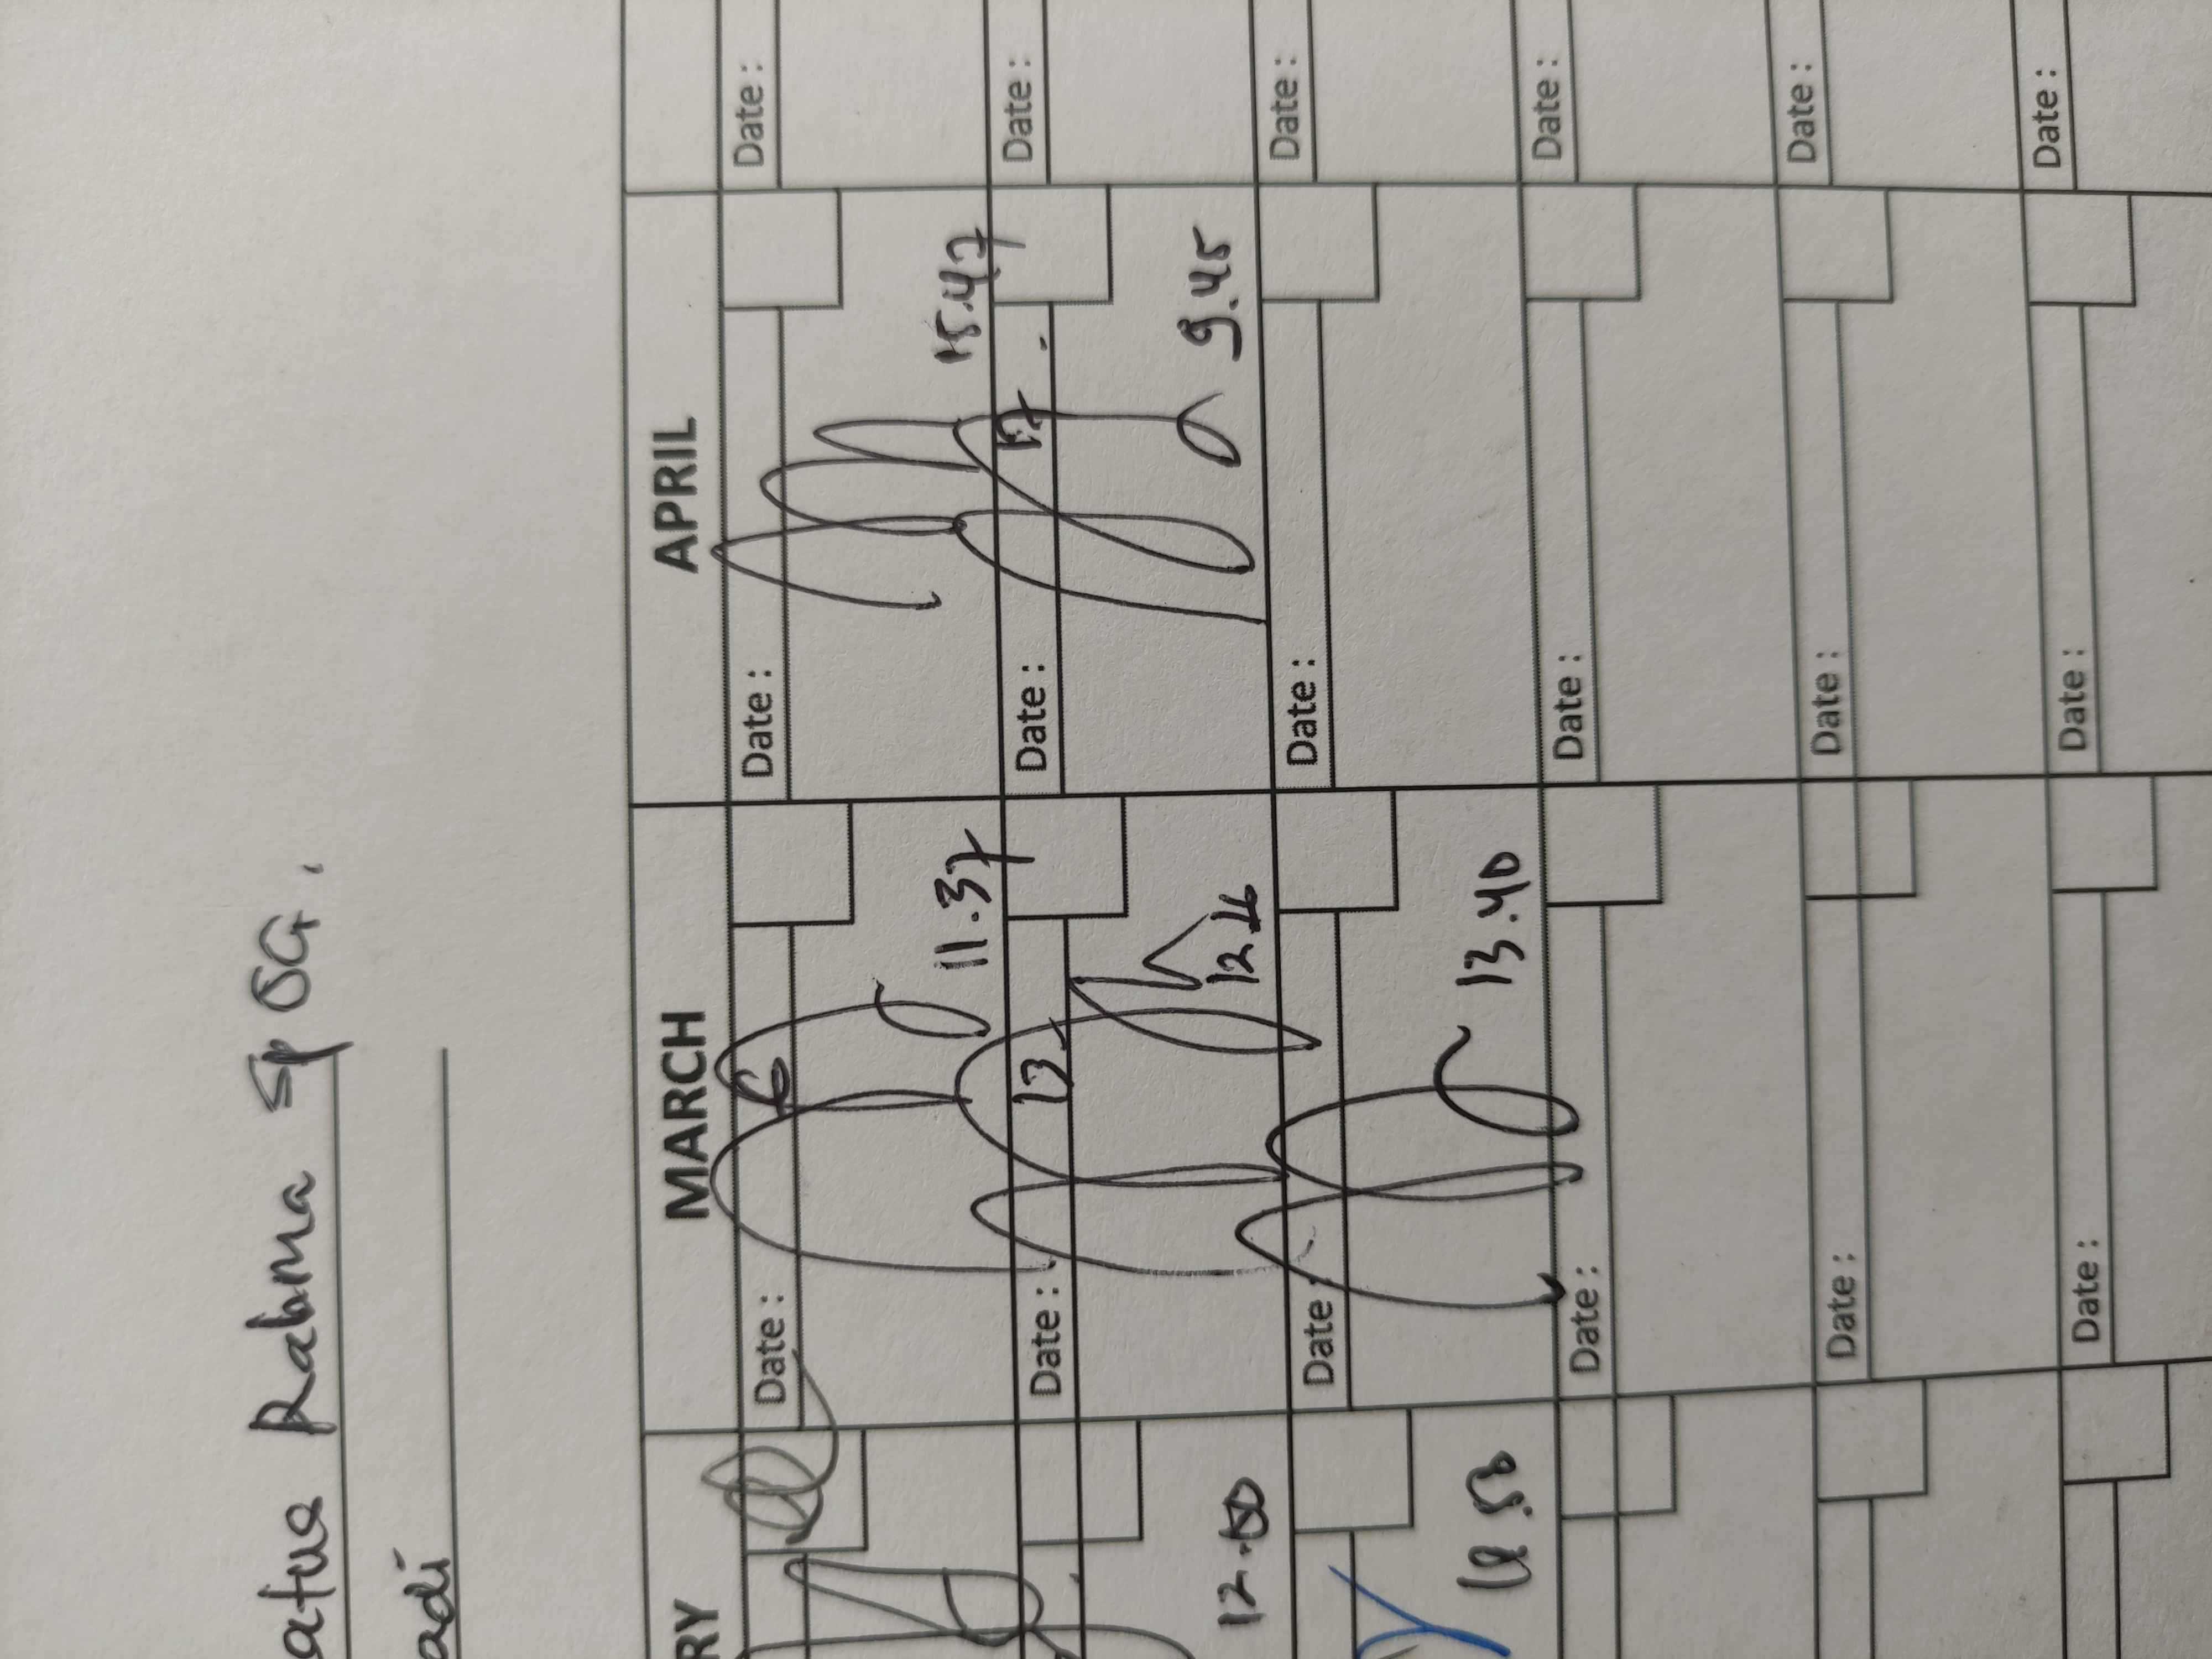 atua Rahma Sp OG.
adi
RY MARCH APRIL
Date : Date : Date :
6
11.37 15.47
Date : Date : Date :
13 17
12.00 12.16 9.45
Date Date : Date :
13.40
Date : Date : Date :
Date : Date : Date :
Date : Date : Date :